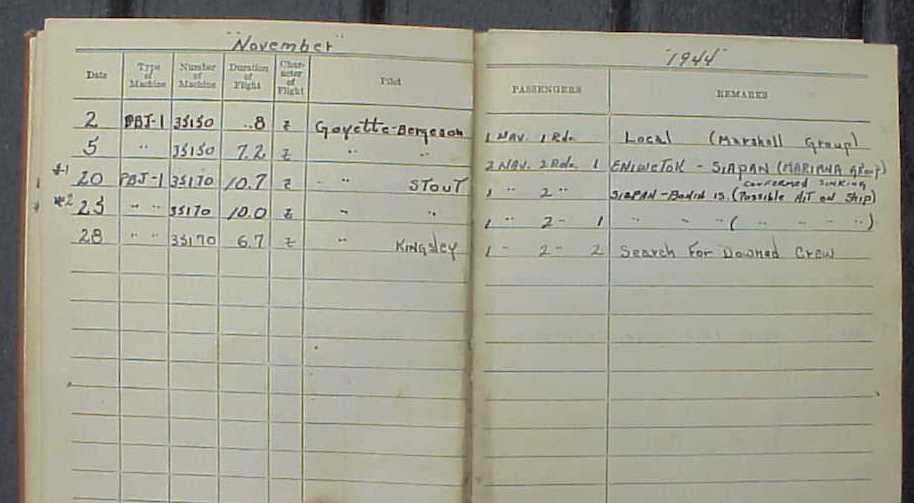 "November"
Date Type of Machine Number of Machine Duration of Flight Character of Flight Pilot
2 PBJ-1 35150 .8 Z Goyette-Bergeson
5 " 35150 7.2 Z " "
#1 20 PBJ-1 35170 10.7 Z " STOUT
#2 23 " " 35170 10.0 Z " "
28 " " 35170 6.7 Z " KINGSLEY
"1944"
PASSENGERS REMARKS
1 NAV. 1 Rdo. Local (Marshall Group)
2 NAV. 2 Rdo. 1 ENIWETOK - SIAPAN (MARIANA GROUP)
CONFIRMED SINKING
1 " 2 " SIAPAN-BONIN IS. (Possible HIT ON Ship)
1 " 2 - 1 " - " ( " - " - " )
1 - 2 - 2 Search For Downed Crew